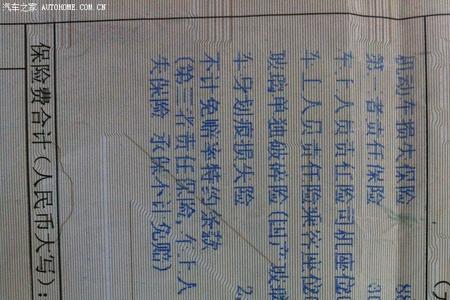 汽车之家 AUTOHOME.COM.CN
机动车损失保险
第三者责任保险
车上人员责任险司机座位
车上人员责任险乘客座位
玻璃单独破碎险(国产玻璃
车身划痕损失险
不计免赔率特约条款
(第三者责任保险,车上人
失保险 承保不计免赔)
保险费合计(人民币大写):